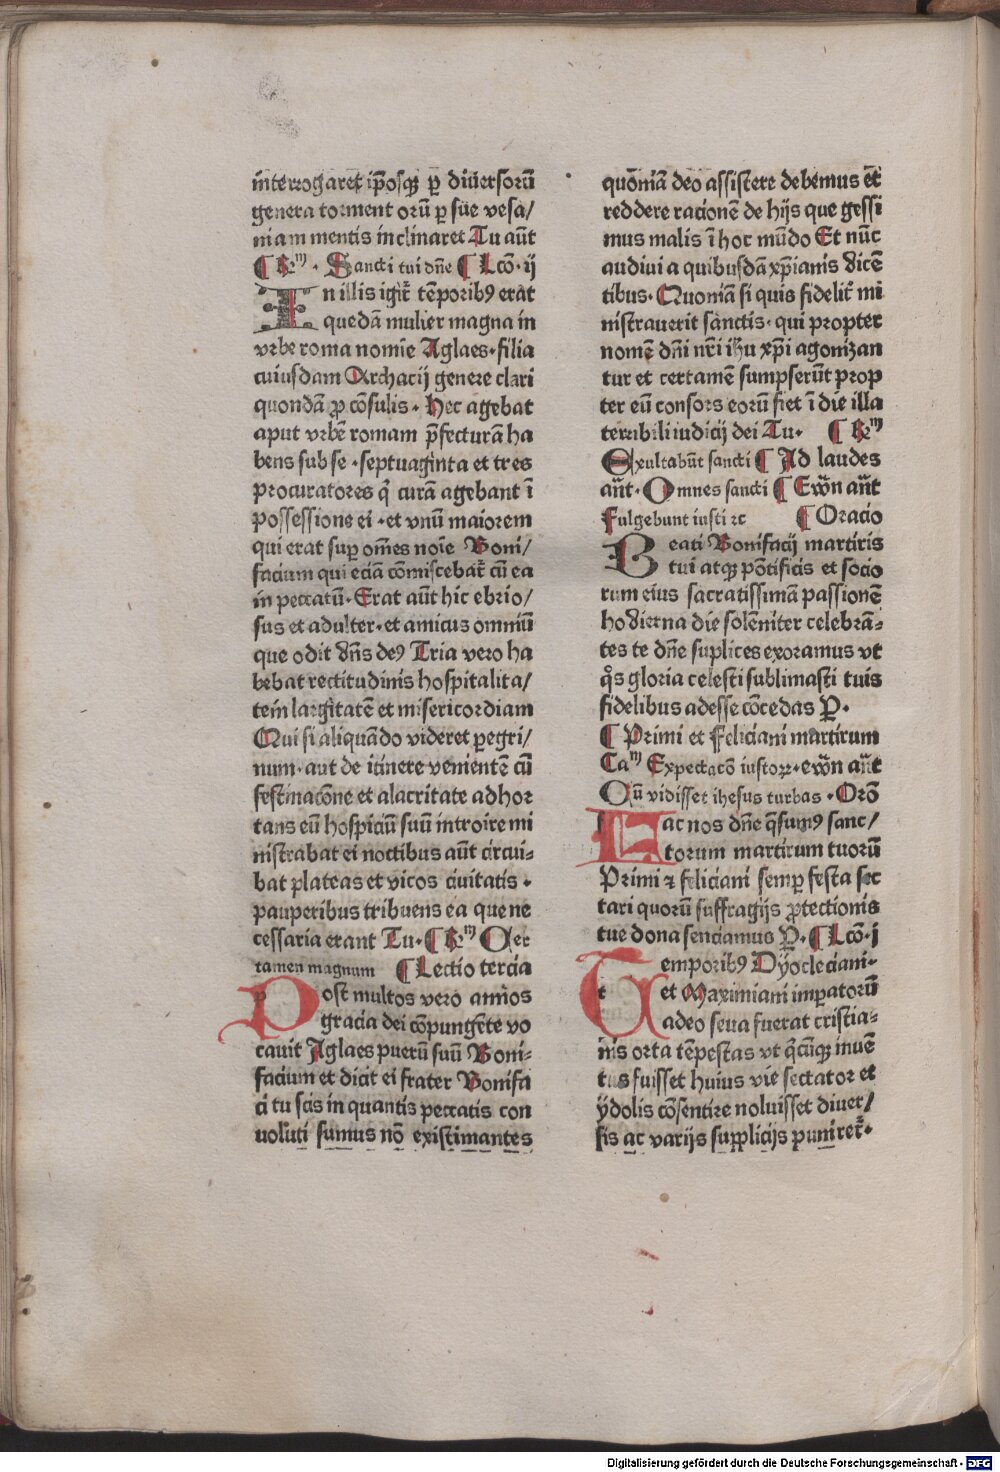 interrogaret̉ ip̄osq̄ꝫ ꝑ diu̾ersorū
genera torment orū ꝑ sūe vesa/
niam mentis inclinaret Tu aūt
¶ ℟m̄ · Sancti tui dn̄e ¶ Lcō· ij
In illis igit̄ tēporibꝰ erāt
quedā mulier magna in
vrbe roma nomīe Aglaes· filia
cuiusdam Archacij genere clari
quondā ꝓ cōsulis · Hec agebat
aput vrbē romam p̄fecturā ha
bens sub se · septuaginta et tres
procuratores q̄ curā agebant ī
possessione ei · et vnū maiorem
qui erat suꝑ om̄es noīe Boni/
facium qui eciā cōmiscebat̄ cū ea
in peccatū · Erat aūt hic ebrio/
sus et adulter · et amicus omniū
que odit dn̄s deꝰ Tria vero ha
bebat rectitudinis hospitalita/
tem largitatē et misericordiam
Qui si aliquādo videret ꝑegri/
num · aut de itinere venientē cū
festinacōne et alacritate adhor
tans eū hospiciū suū introire mi
nistrabat ei noctibus aūt circui-
bat plateas et vicos ciuitatis ·
pauperibus tribuens ea que ne
cessaria erant Tu · ¶ ℟m̄ Cer
tamen magnum ¶ Lectio tercia
Post multos vero annos
gracia dei cōpungēte vo
cauit Aglaes puerū suū Boni-
facium et dicit ei frater Bonifa
ci tu scis in quantis peccatis con
uoluti sumus nō existimantes
quōniā deo assistere debemus et̄
reddere racionē de hijs que gessi
mus malis ī hoc mūdo Et nūc
audiui a quibusdā xp̄ianis dicē
tibus · Quoniā si quis fidelit̄ mi
nistrauerit sanctis · qui propter
nomē dn̄i nr̄i ihū xp̄i agonizan
tur et certamē sumpserūt prop
ter eū consors eorū fiet ī die illa
terribili iudicij dei Tu · ¶ ℟m̄
Exultabūt sancti ¶ Ad laudes
añt · Omnes sancti ¶ Ew̄n añt
Fulgebunt iusti ꝛc ¶ Oracio
Beati Bonifacij martiris
tui atqꝫ pōtificis et socio
rum eius sacratissimā passionē
hodierna die solēniter celebrā-
tes te dn̄e suplices exoramus vt
q̊s gloria celesti sublimasti tuis
fidelibus adesse cōcedas P̄ ·
¶ Primi et Feliciani martirum
Cam̄ Expectacō iustoꝝ · ew̄n añt
Cū vidisset ihesus turbas · Orō
Fac nos dn̄e q̄sumꝰ sanc/
torum martirum tuorū
Primi ⁊ feliciani semꝑ festa sec
tari quorū suffragijs ꝓtectionis
tue dona senciamus P̄ · ¶ Lcō · j
Temporibꝰ Dyocleciani-
et Maximiani imꝑatorū
adeo seua fuerat cristia-
nis orta tēpestas vt q̄cūqꝫ inuē
tus fuisset huius vie sectator et
ydolis cōsentire noluisset diuer/
sis ac varijs supplicijs puniret̉ ·
Digitalisierung gefördert durch die Deutsche Forschungsgemeinschaft - DFG